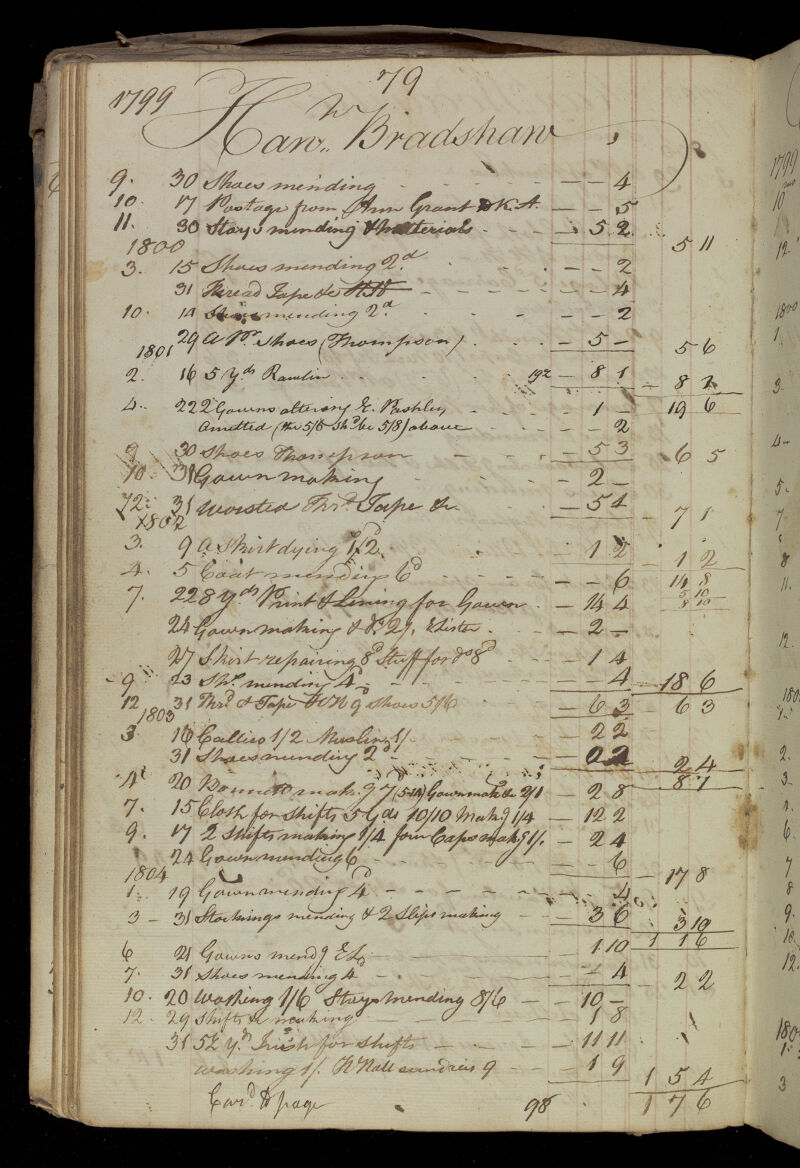 79
1799
Han.. Bradshaw
9. 30 Shoes mending - - 4
10. 17 Postage from Ann Grant & K.A. - - 5
11. 30 Stays mending & materials - 5 2 5 11
1800
3. 15 Shoes mending 2d. - - 2
31 Thread Tape &c - - 4
10. 14 Shoes mending 2d - - 2
29 a Pr. Shoes (Thompson) - 5 - 5 6
1801
2. 16 5 Yds 192 - 8 1 - 8 1
4. 22 2 Gowns altering E. Pashley - 1 - 19 6
Omitted (the 5/6 shd. be 5/8) above - - 2
9 30 Shoes Thompson - 5 3 - 6 5
10. 31 Gown making - 2 -
12. 31 Worsted Thrd. Tape &c. - 5 4 - 7 1
1802
3. 9 a Skirt dying 1/2 - 1 2 - 1 2
4. 5 Coat mending 6d - - 6 14 8
7. 22 8 Yds Print & Lining for Gown - 14 4
24 Gown making &c. 2/. - 2 -
27 Skirt repairing 8d Stuff for do 8d - 1 4
9 23 Shs. mending 4d - - 4 - 18 6
12 31 Thrd. & Tape Shoes 5/6 - 6 3 - 6 3
1803
3 16 Callico 1/2 Muslin 1/ - 2 2
31 Shoes mending 2d - 2 2 4
4 20 Gown mak - 2 8 8 7
7. 15 Cloth for Shifts 5 Yds 10/10 Makg 1/4 - 12 2
9. 17 2 Shifts making 1/4 four Caps makg 1/. - 2 4
24 Gown mending 6 - - 6 - 17 8
1804
1. 19 Gown mending 4d - - 4
3 - 31 Stockings mending & 2 Slips making - 3 6 3 10
6 21 Gowns mendg 1 10 1 1 6
7. 31 Shoes mending 4d - - 4 - 2 2
10. 20 Washing 1/6 Stays mending 8/6 - 10 -
12. 29 Shifts making - 1 8
31 Yds Irish for Shifts - 11 11
Washing 1/. sundries 9 - 1 9 1 5 4
Card. to page 98 1 7 6